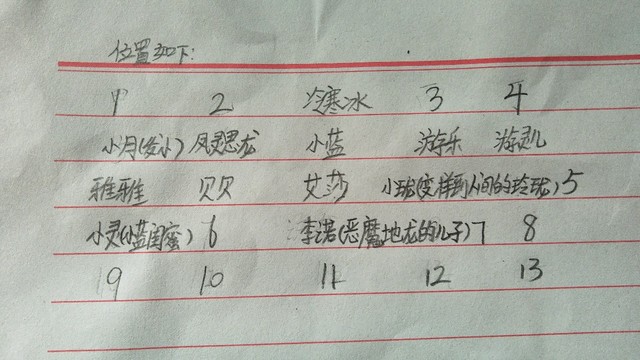 位置如下:
1 2 冷寒冰 3 4
小月(发小) 凤灵思龙 小蓝 游乐 游灵儿
雅雅 贝贝 艾莎 小珑(变样到人间的玲珑) 5
小灵(小蓝闺蜜) 6 李诺(恶魔地龙的儿子) 7 8
9 10 11 12 13